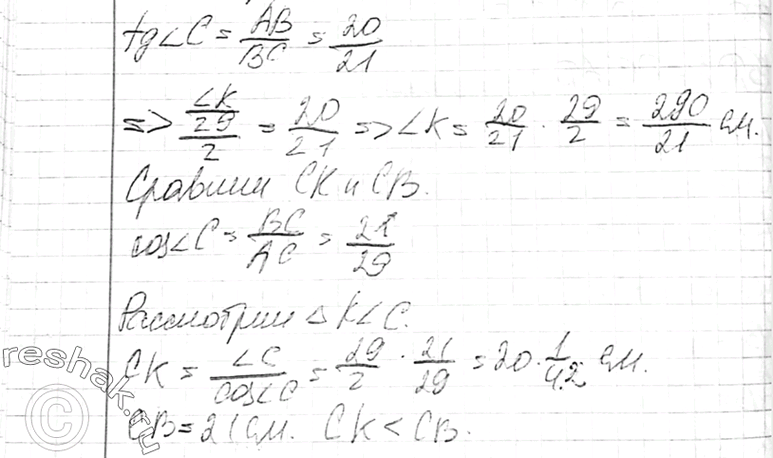 tg∠C = AB/BC = 20/21
=> LK/(29/2) = 20/21 => LK = 20/21 · 29/2 = 290/21 см.
Сравним CK и CB.
cos∠C = BC/AC = 21/29
Рассмотрим △KLC.
CK = LC/cos∠C = 29/2 · 21/29 = 20 · 1/42 см.
CB = 21 см. CK < CB.
reshak.ru